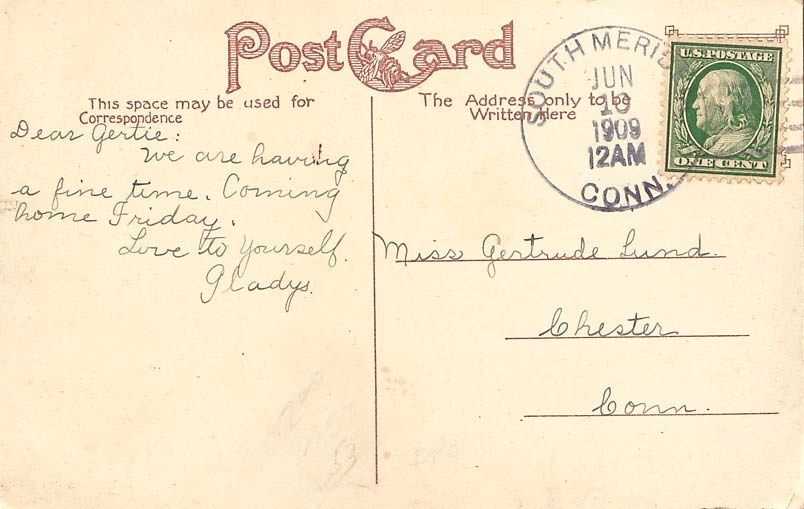 Post Card
This space may be used for
Correspondence
The Address only to be
Written Here
SOUTH MERID
JUN
10
1909
12AM
CONN.
U.S. POSTAGE
ONE CENT
Dear Gertie:
We are having
a fine time. Coming
home Friday.
Love to Yourself.
Gladys.
Miss Gertrude Lund.
Chester
Conn.
53